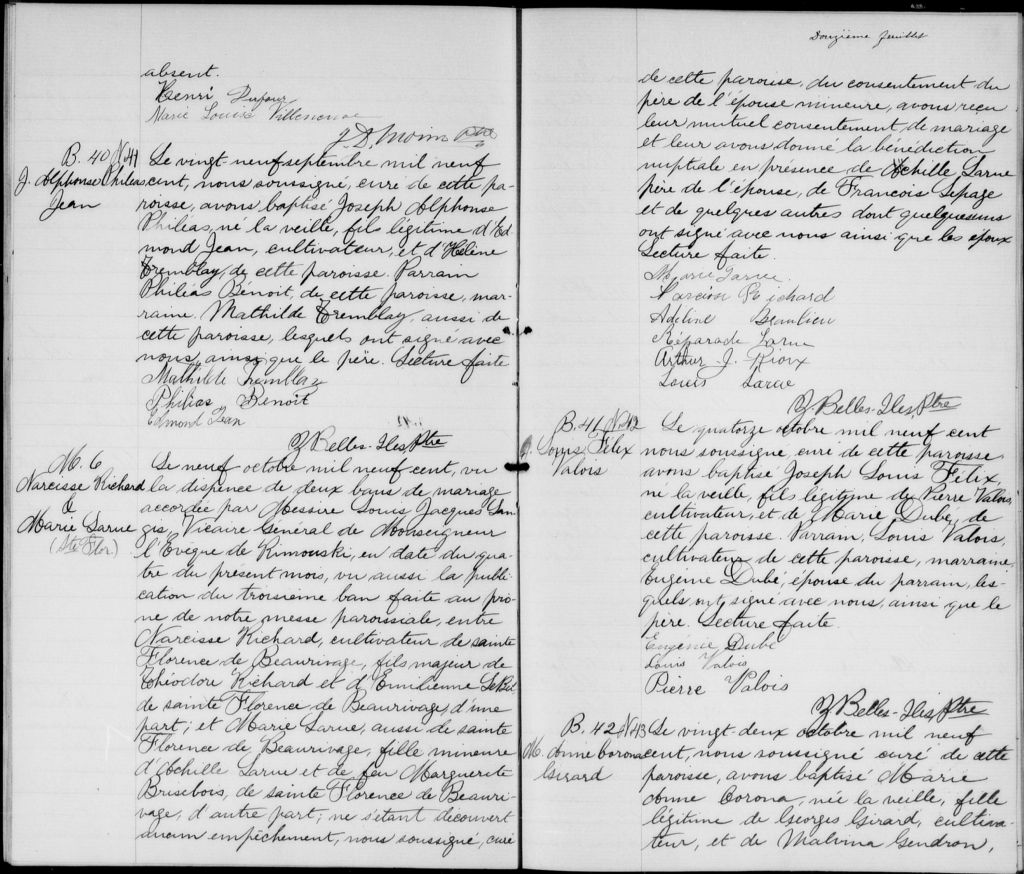 absent.
Henri Dufour
Marie Louise Villeneuve
J. D. Morin Ptre
B. 40 No 41
J. Alphonse Philéas
Jean
Le vingt-neuf septembre mil neuf
cent, nous soussigné, curé de cette pa-
roisse, avons baptisé Joseph Alphonse
Philéas, né la veille, fils légitime d'Ed
mond Jean, cultivateur, et d'Hélène
Tremblay, de cette paroisse. Parrain
Philéas Bénoit, de cette paroisse, mar-
raine, Mathilde Tremblay, aussi de
cette paroisse, lesquels ont signé avec
nous, ainsi que le père. Lecture faite
Mathilde Tremblay
Philias Benoit
Edmond Jean
Y Belles-Iles, Ptre
M. 6
Narcisse Richard
&
Marie Larue
(Ste Flor.)
Le neuf octobre mil neuf cent, vu
la dispence de deux bans de mariage
accordée par Messire Louis Jacques Lan
gis, Vicaire Général de Monseigneur
l'Evêque de Rimouski, en date du qua
tre du présent mois, vu aussi la publi
cation du troisième ban faite au prô-
ne de notre messe paroissiale, entre
Narcisse Richard, cultivateur de sainte
Florence de Beaurivage, fils majeur de
Théodore Richard et d'Emilienne LeBel
de sainte Florence de Beaurivage, d'une
part; et Marie Larue, aussi de sainte
Florence de Beaurivage, fille mineure
d'Achille Larue et de feu Marguerite
Brisebois, de sainte Florence de Beauri-
vage, d'autre part; ne s'étant découvert
aucun empêchement, nous soussigné, curé
Douzième feuillet
de cette paroisse, du consentement du
père de l'épouse mineure, avons reçu
leur mutuel consentement de mariage
et leur avons donné la bénédiction
nuptiale en présence de Achille Larue
père de l'épouse, de Francois Lepage
et de quelques autres dont quelquesuns
ont signé avec nous ainsi que les époux
Lecture faite.
Marie Larue
Narcisse Richard
Adeline Beaulieu
Réparade Larue
Arthur J. Rioux
Louis Larue
Y Belles-Iles, Ptre
B. 41 No 42
J. Louis Félix
Valois
Le quatorze octobre mil neuf cent
nous soussigné, curé de cette paroisse
avons baptisé Joseph Louis Félix,
né la veille, fils légitime de Pierre Valois,
cultivateur, et de Marie Dubé, de
cette paroisse. Parrain, Louis Valois,
cultivateur de cette paroisse, marraine,
Eugénie Dubé, épouse du parrain, les-
quels ont signé avec nous, ainsi que le
père. Lecture faite.
Eugénie Dubé
Louis Valois
Pierre Valois
Y Belles-Iles, Ptre
B. 42 No 43
M. Anne Corona
Girard
Le vingt-deux octobre mil neuf
cent, nous soussigné curé de cette
paroisse, avons baptisé Marie
Anne Corona, née la veille, fille
légitime de Georges Girard, cultiva-
teur, et de Malvina Gendron,